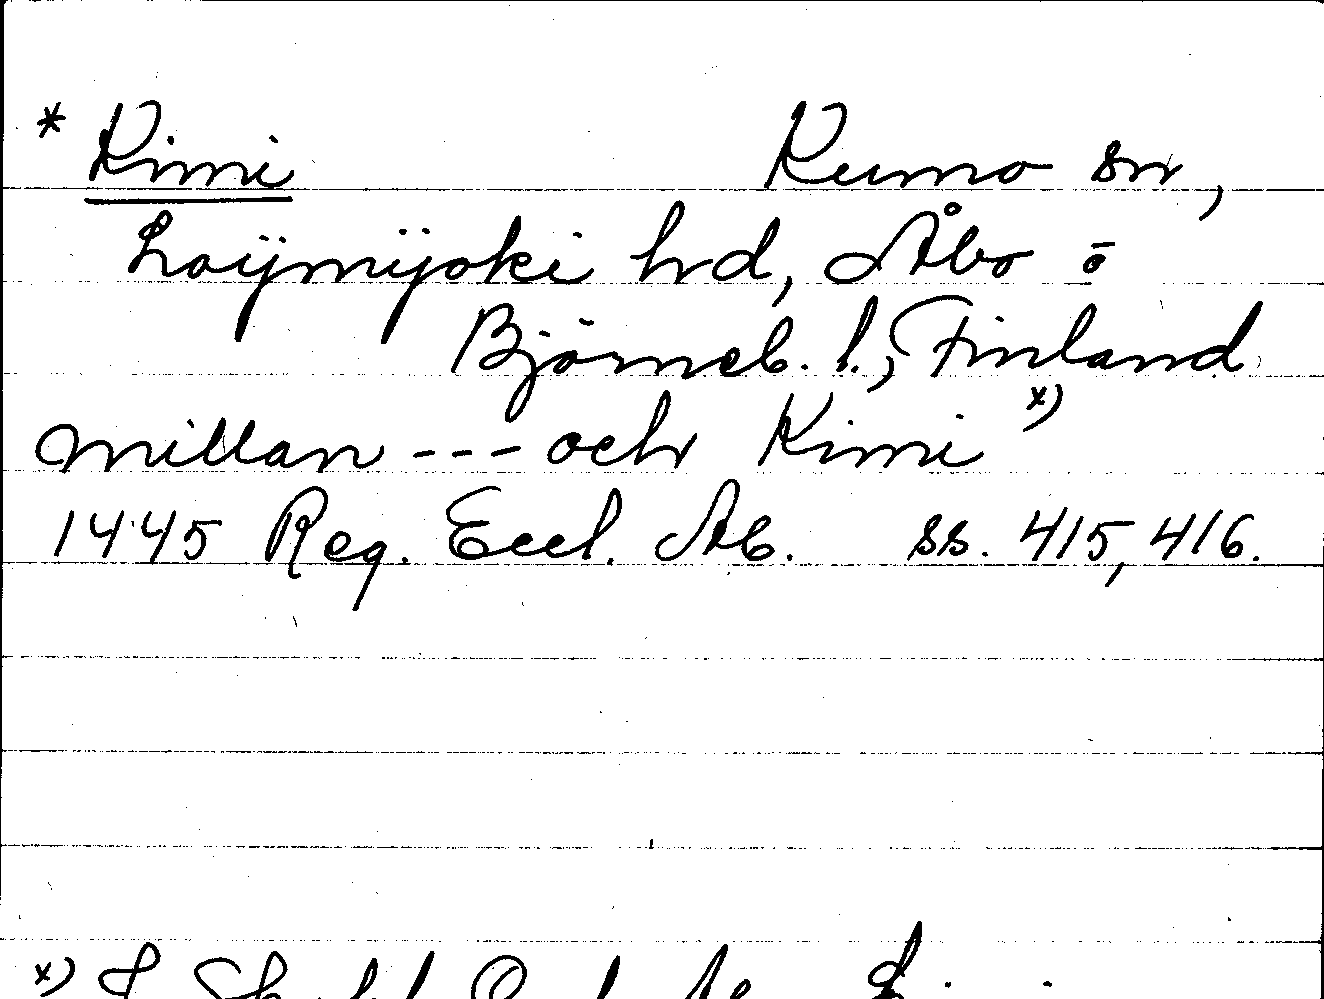 * Kimi Kumo sn,
Loijmijoki hd, Åbo o
Björneb. l., Finland
millan --- och Kimi x)
1445 Reg. Eccl. Ab. ss. 415, 416.
x)